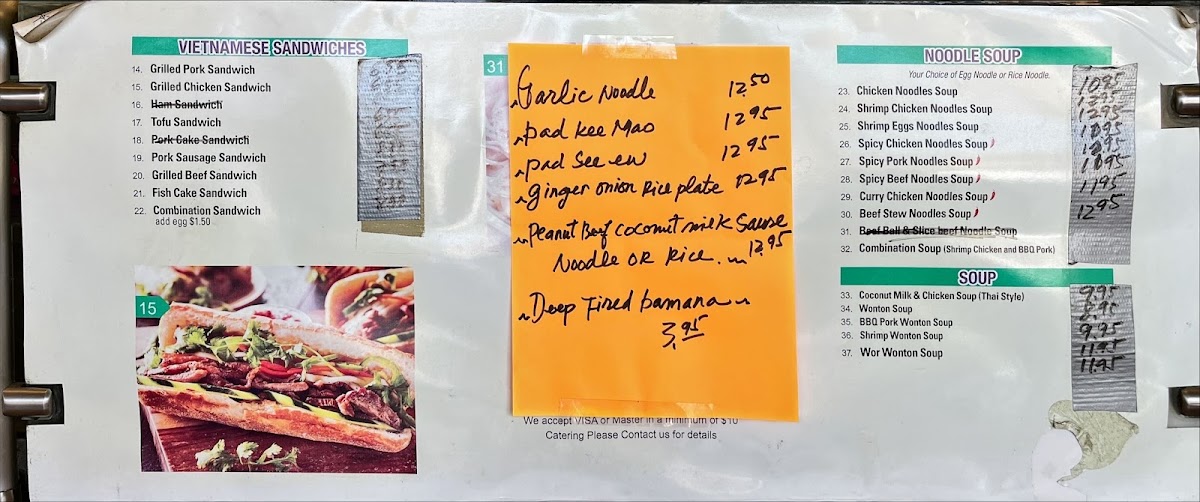 VIETNAMESE SANDWICHES
14. Grilled Pork Sandwich
15. Grilled Chicken Sandwich
16. Ham Sandwich
17. Tofu Sandwich
18. Pork Cake Sandwich
19. Pork Sausage Sandwich
20. Grilled Beef Sandwich
21. Fish Cake Sandwich
22. Combination Sandwich
add egg $1.50
15
31
Garlic Noodle 12.50
pad kee Mao 12.95
pad See ew 12.95
ginger onion Rice plate 12.95
Peanut Beef coconut milk Sause
Noodle OR Rice. 12.95
Deep Fired bamana
3.95
We accept VISA or Master in a minimum of $10
Catering Please Contact us for details
NOODLE SOUP
Your Choice of Egg Noodle or Rice Noodle.
23. Chicken Noodles Soup
24. Shrimp Chicken Noodles Soup
25. Shrimp Eggs Noodles Soup
26. Spicy Chicken Noodles Soup
27. Spicy Pork Noodles Soup
28. Spicy Beef Noodles Soup
29. Curry Chicken Noodles Soup
30. Beef Stew Noodles Soup
31. Beef Ball & Slice beef Noodle Soup
32. Combination Soup (Shrimp Chicken and BBQ Pork)
10.95
12.95
12.95
10.95
10.95
10.95
11.95
12.95
SOUP
33. Coconut Milk & Chicken Soup (Thai Style)
34. Wonton Soup
35. BBQ Pork Wonton Soup
36. Shrimp Wonton Soup
37. Wor Wonton Soup
9.95
8.95
9.95
11.95
11.95